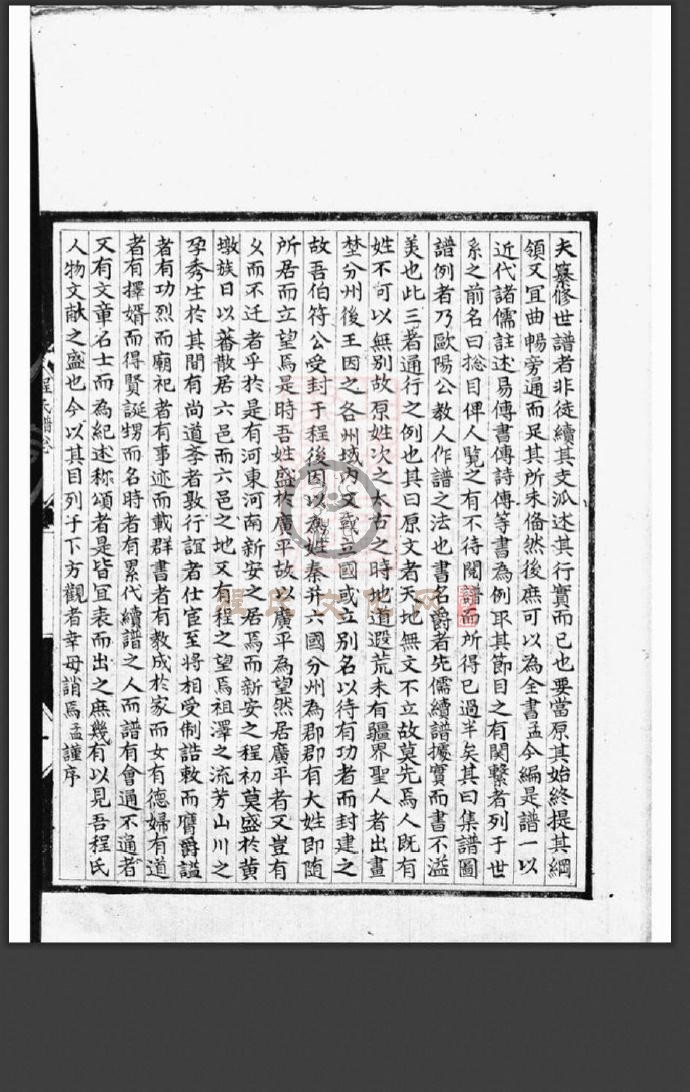 夫纂修世譜者非徒續其支泒述其行實而已也要當原其始終提其綱
領又冝曲暢旁通而足其所未俻然後庶可以為全書孟今編是譜一以
近代諸儒註述易傳書傳詩傳等書為例取其節目之有関繫者列于世
系之前名曰捴目俾人覧之有不待閲譜而所得已過半矣其曰集譜圖
譜例者乃歐陽公教人作譜之法也書名爵者先儒續譜攄實而書不溢
美也此三者通行之例也其曰原文者天地無文不立故莫先焉人既有
姓不可以無別故原姓次之太古之時地道遐荒未有疆界聖人者出畫
埜分州後王因之各州域內又或立國或立別名以待有功者而封建之
故吾伯符公受封于程後因以為姓秦并六國分州為郡郡有大姓即随
所居而立望焉是時吾姓盛於廣平故以廣平為望然居廣平者又豈有
乆而不迁者乎於是有河東河南新安之居焉而新安之程初莫盛於黄
墩族日以蕃散居六邑而六邑之地又有程之望焉祖澤之流芳山川之
孕秀生於其間有尚道李者敦行誼者仕宦至將相受制誥敕而膺爵謚
者有功烈而廟祀者有事迹而載群書者有教成於家而女有德婦有道
者有擇婿而得賢誕甥而名時者有累代續譜之人而譜有會通不通者
又有文章名士而為紀述称頌者是皆冝表而出之庶幾有以見吾程氏
人物文献之盛也今以其目列于下方觀者幸毋誚焉孟謹序
程氏譜